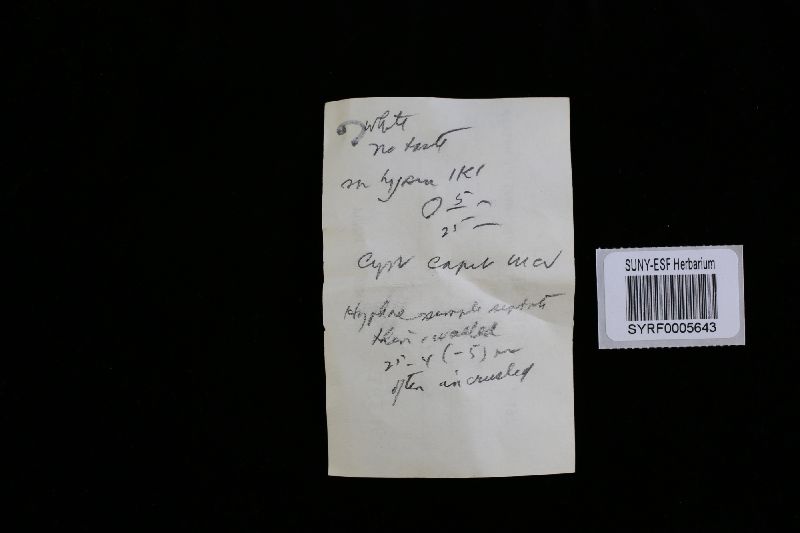 ? white
no taste
sm hyphn IKI
5
25
Cyst Capit
Hyphae simple septate
thin walled
25-4 (-5)
often incrusted
SUNY-ESF Herbarium
SYRF0005643